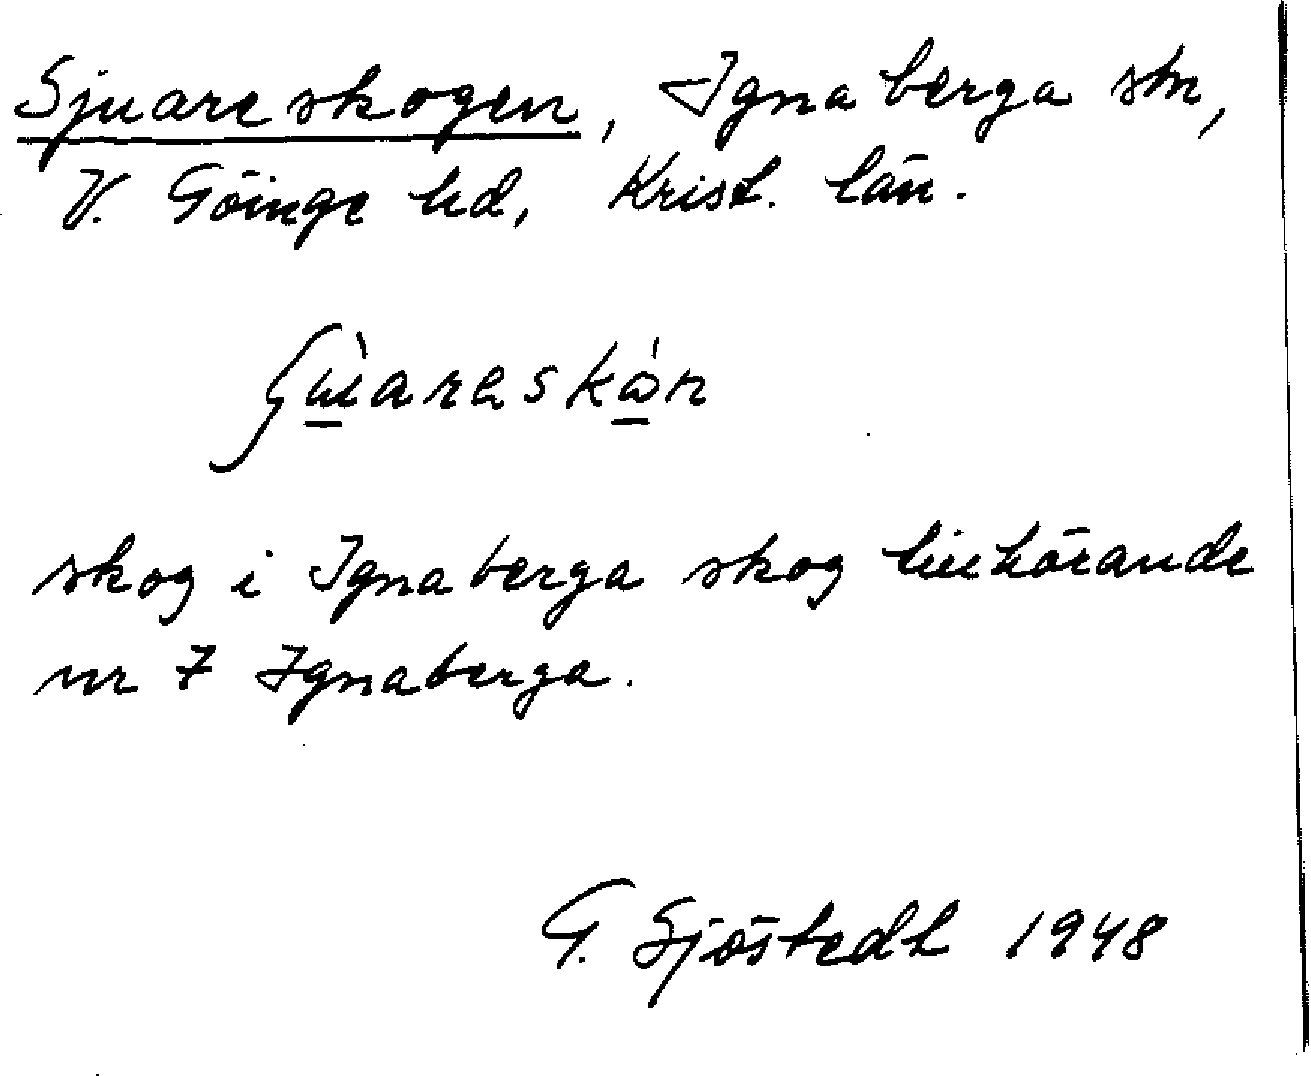 Sjuareskogen, Ignaberga sn,
V. Göinge hd, Krist. län.
skog i Ignaberga skog tillhörande
nr 7 Ignaberga.
G. Sjöstedt 1948